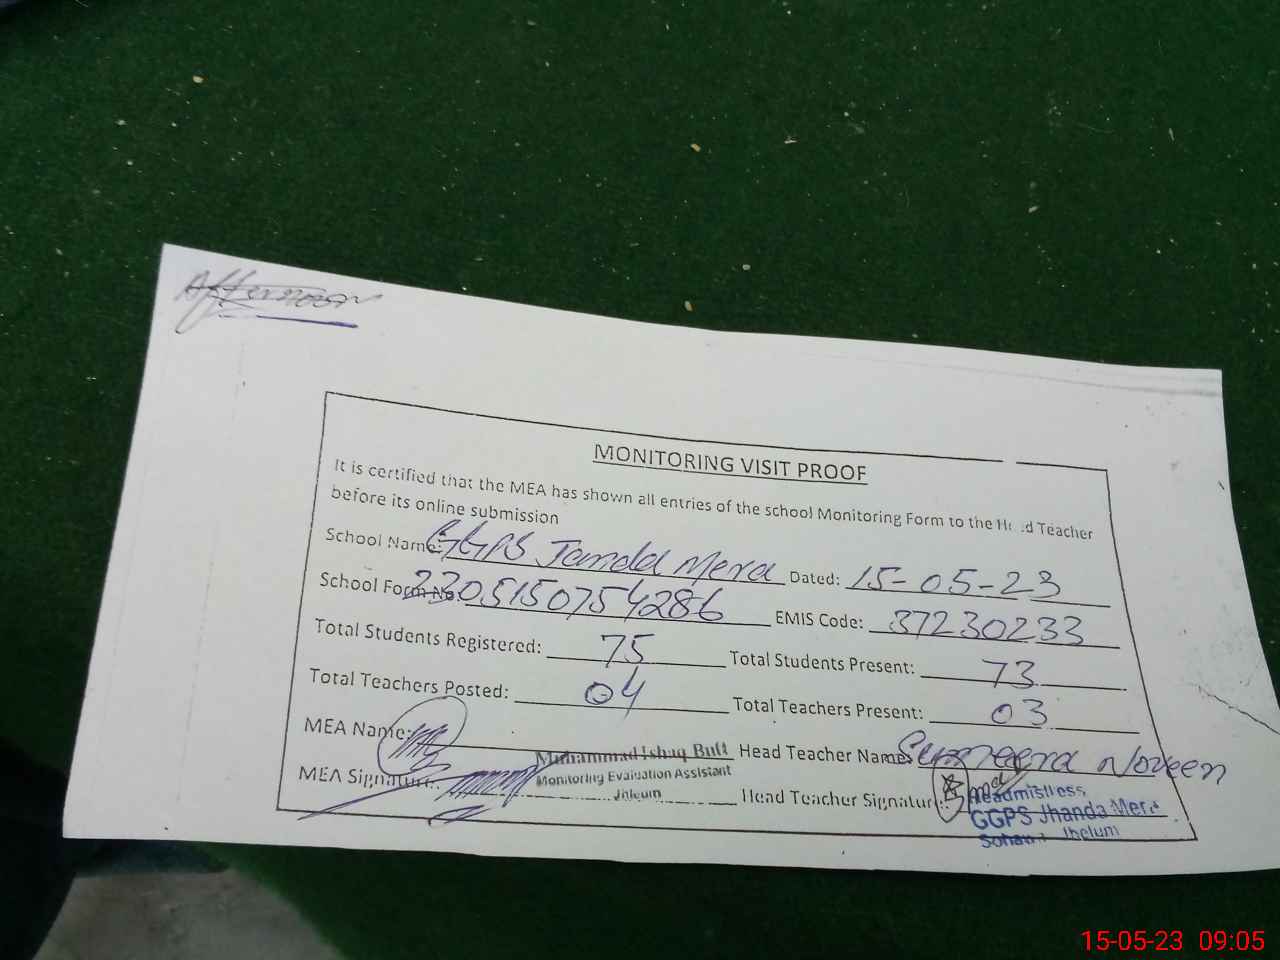 Afternoon
MONITORING VISIT PROOF
It is certified that the MEA has shown all entries of the school Monitoring Form to the Head Teacher
before its online submission
School Name: GGPS Janda Mera Dated: 15-05-23
School Form No. 2305150754286 EMIS Code: 37230233
Total Students Registered: 75 Total Students Present: 73
Total Teachers Posted: 04 Total Teachers Present: 03
MEA Name: Head Teacher Name: Sumeera Noveen
MEA Signature: Head Teacher Signature:
Muhammad Ishaq Butt
Monitoring Evaluation Assistant
Jhelum
Headmistress,
GGPS Jhanda Mera
Sohawa Jhelum
15-05-23 09:05